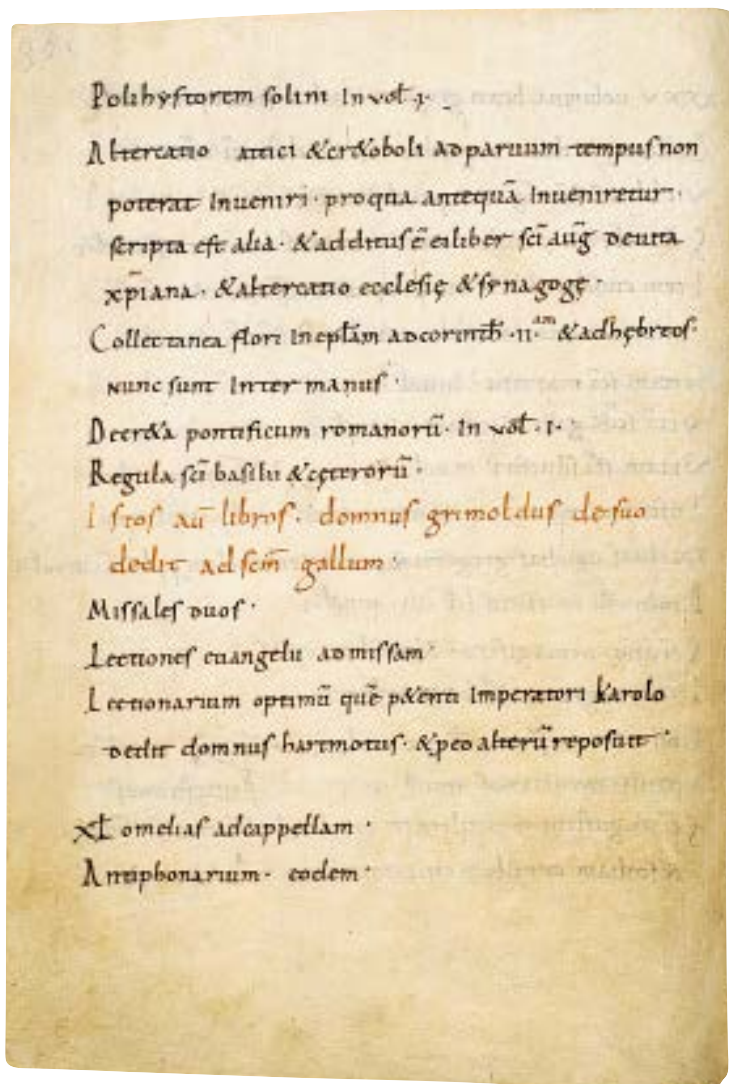 Polihystorem solini In vol̄ ·I·
Altercatio attici &cr&oboli ad paruum tempus non
poterat Inueniri · pro qua antequā Inueniretur ·
scripta est alia · & additus ē ei liber sc̄i auḡ de uita
xp̄iana · & altercatio ecclesię & synagogę ·
Collectanea flori In epl̄am ad corinth̄ ·II·am & ad hębreos ·
nunc sunt Inter manus ·
Decr&a pontificum romanorū · In vol̄ ·I·
Regula sc̄i basilii & cęterorū ·
Istos aū libros · domnus grimoldus de suo
dedit ad sc̄m gallum ·
Missales duos ·
Lectiones euangelii ad missam ·
Lectionarium optimū quē p&enti Imperatori karolo
dedit domnus hartmotus · & p eo alterū reposuit ·
XL omelias ad cappellam ·
Antiphonarium · eodem ·